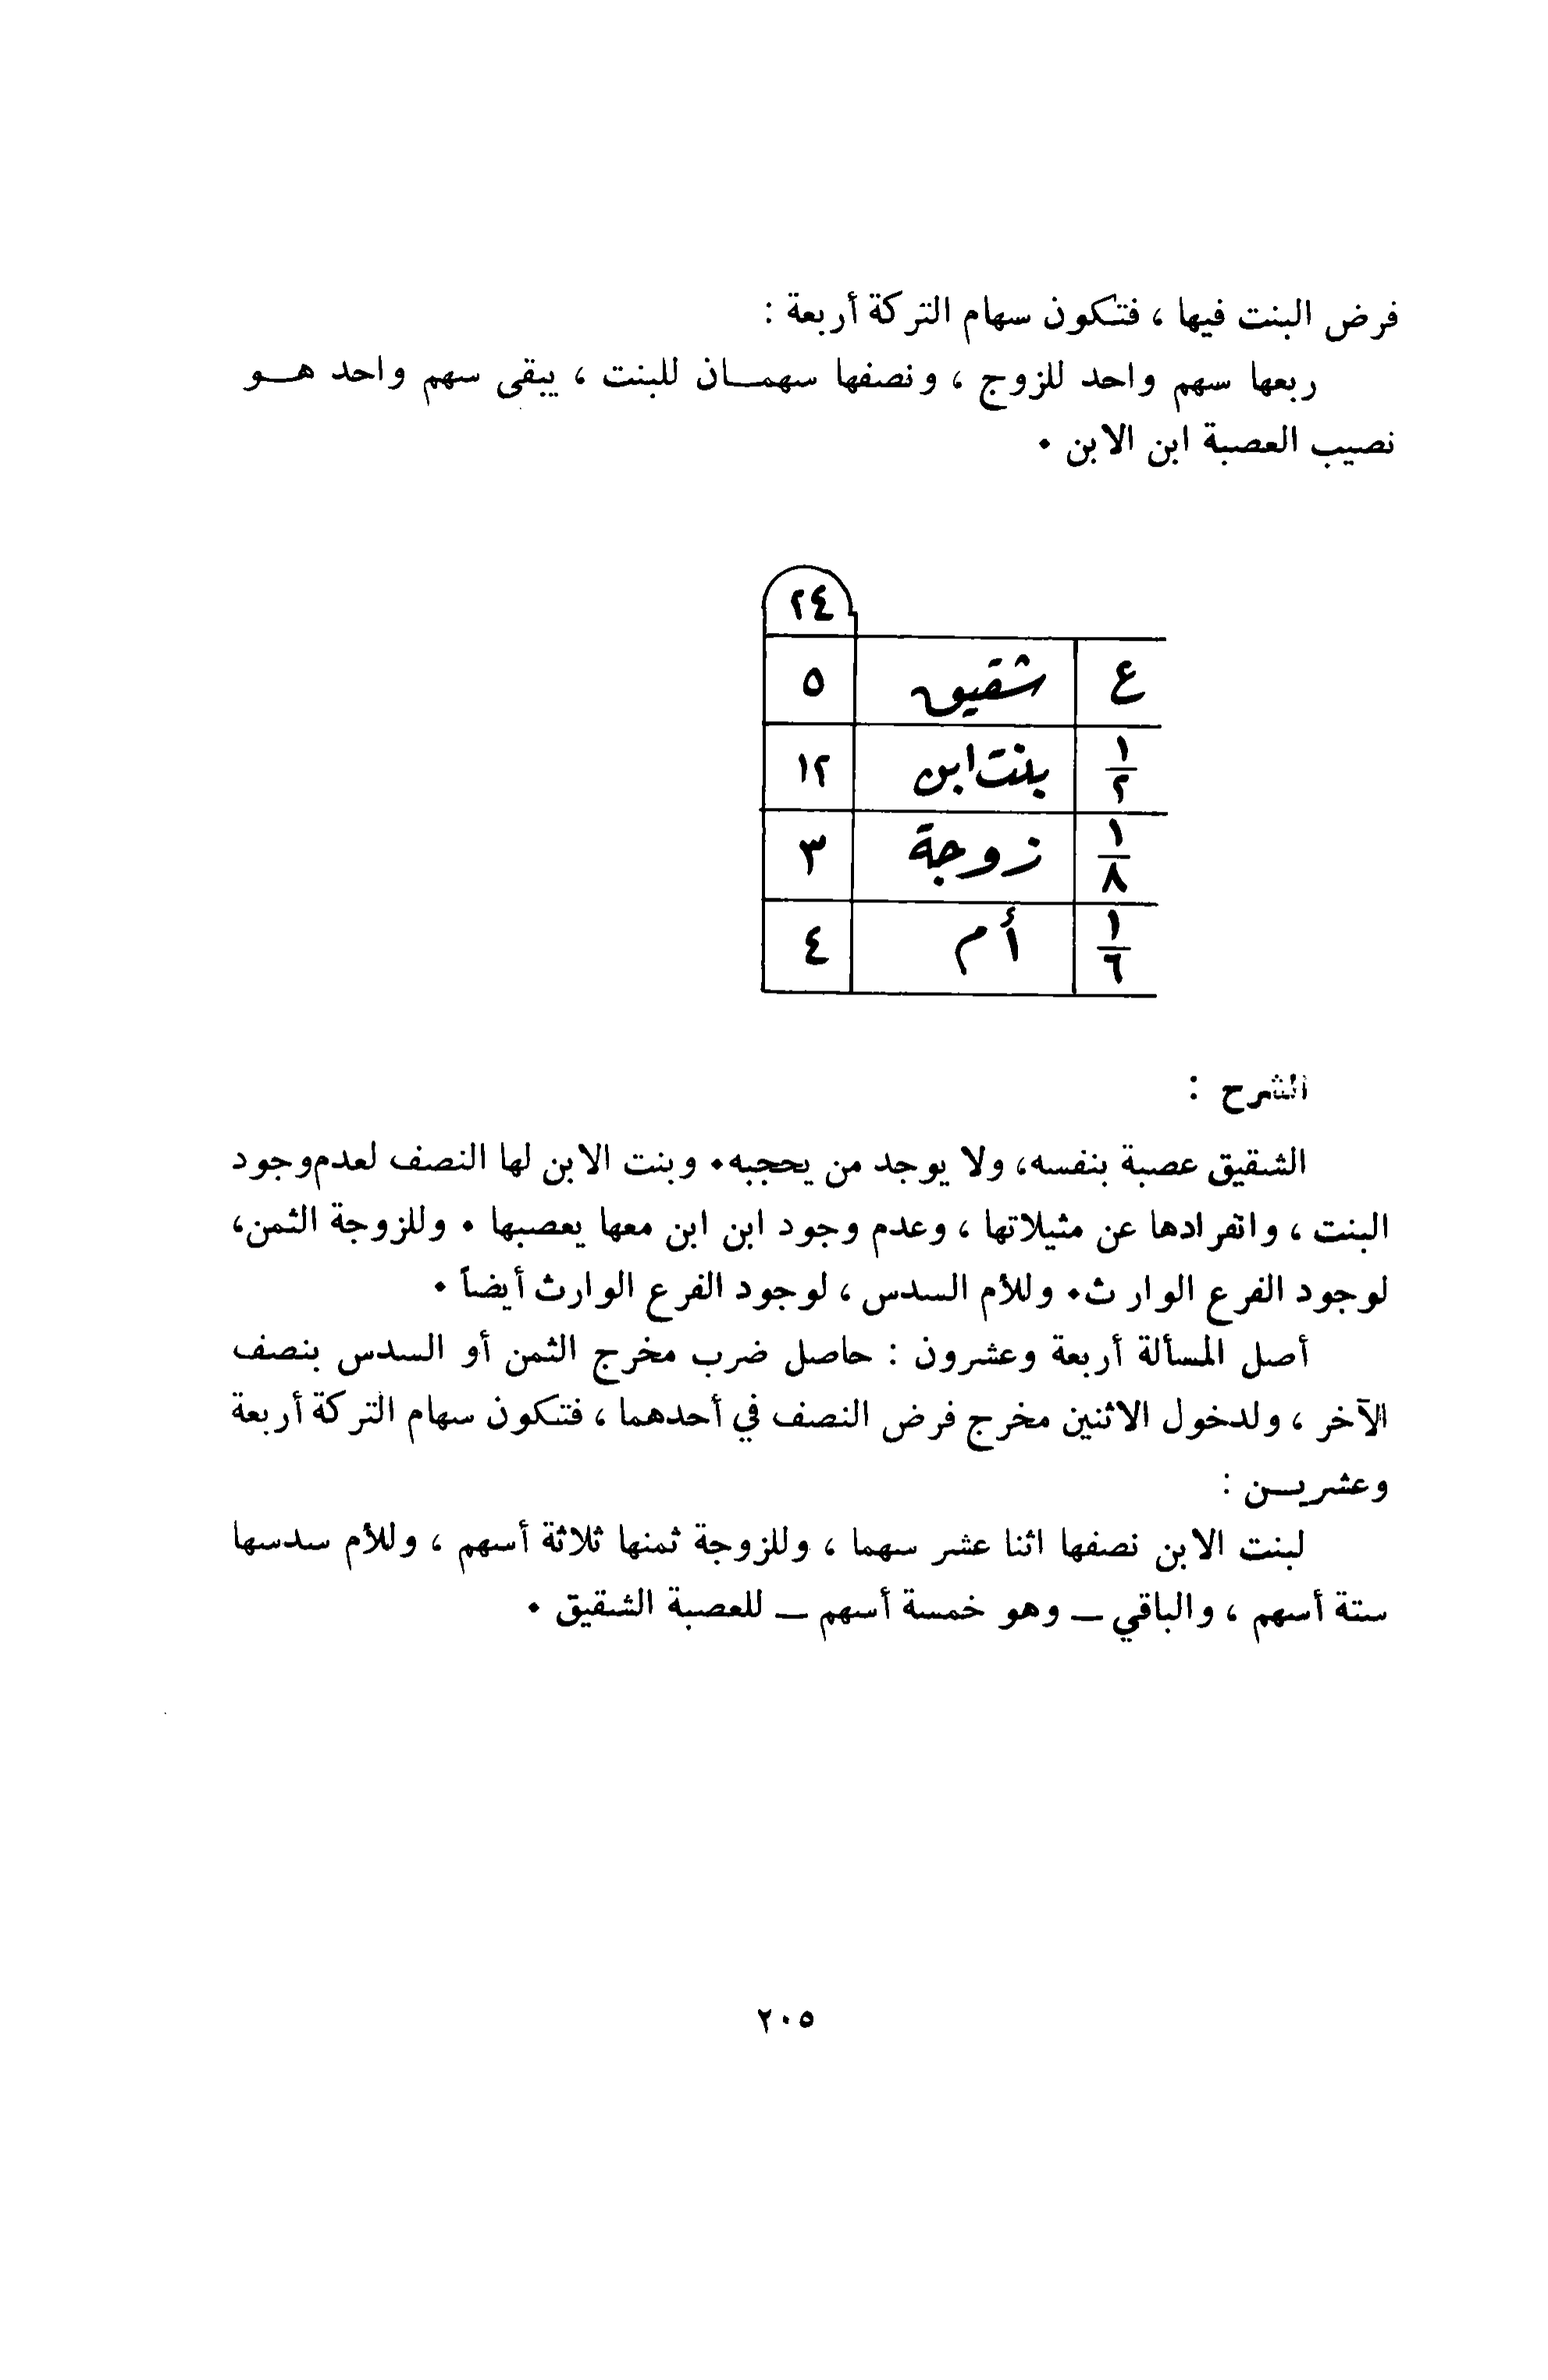 فرض البنت فيها ، فتكون سهام التركة أربعة :
ربعها سهم واحد للزوج ، ونصفها سهمـــان للبنت ، يبقى سهم واحد هـــو
نصيب العصبة ابن الابن ٠
٢٤
ع شقيق ٥
١/٢ بنت ابن ١٢
١/٨ زوجة ٣
١/٦ أم ٤
الشرح :
الشقيق عصبة بنفسه، ولا يوجد من يحجبه٠ وبنت الابن لها النصف لعدم وجود
البنت ، وانفرادها عن مثيلاتها ، وعدم وجود ابن ابن معها يعصبها ٠ وللزوجة الثمن،
لوجود الفرع الوارث٠ وللأم السدس ، لوجود الفرع الوارث أيضاً ٠
أصل المسألة أربعة وعشرون : حاصل ضرب مخرج الثمن أو السدس بنصف
الآخر ، ولدخول الاثنين مخرج فرض النصف في أحدهما ، فتكون سهام التركة أربعة
وعشريـــن :
لبنت الابن نصفها اثنا عشر سهما ، وللزوجة ثمنها ثلاثة أسهم ، وللأم سدسها
ستة أسهم ، والباقي ــ وهو خمسة أسهم ــ للعصبة الشقيق ٠
٢٠٥